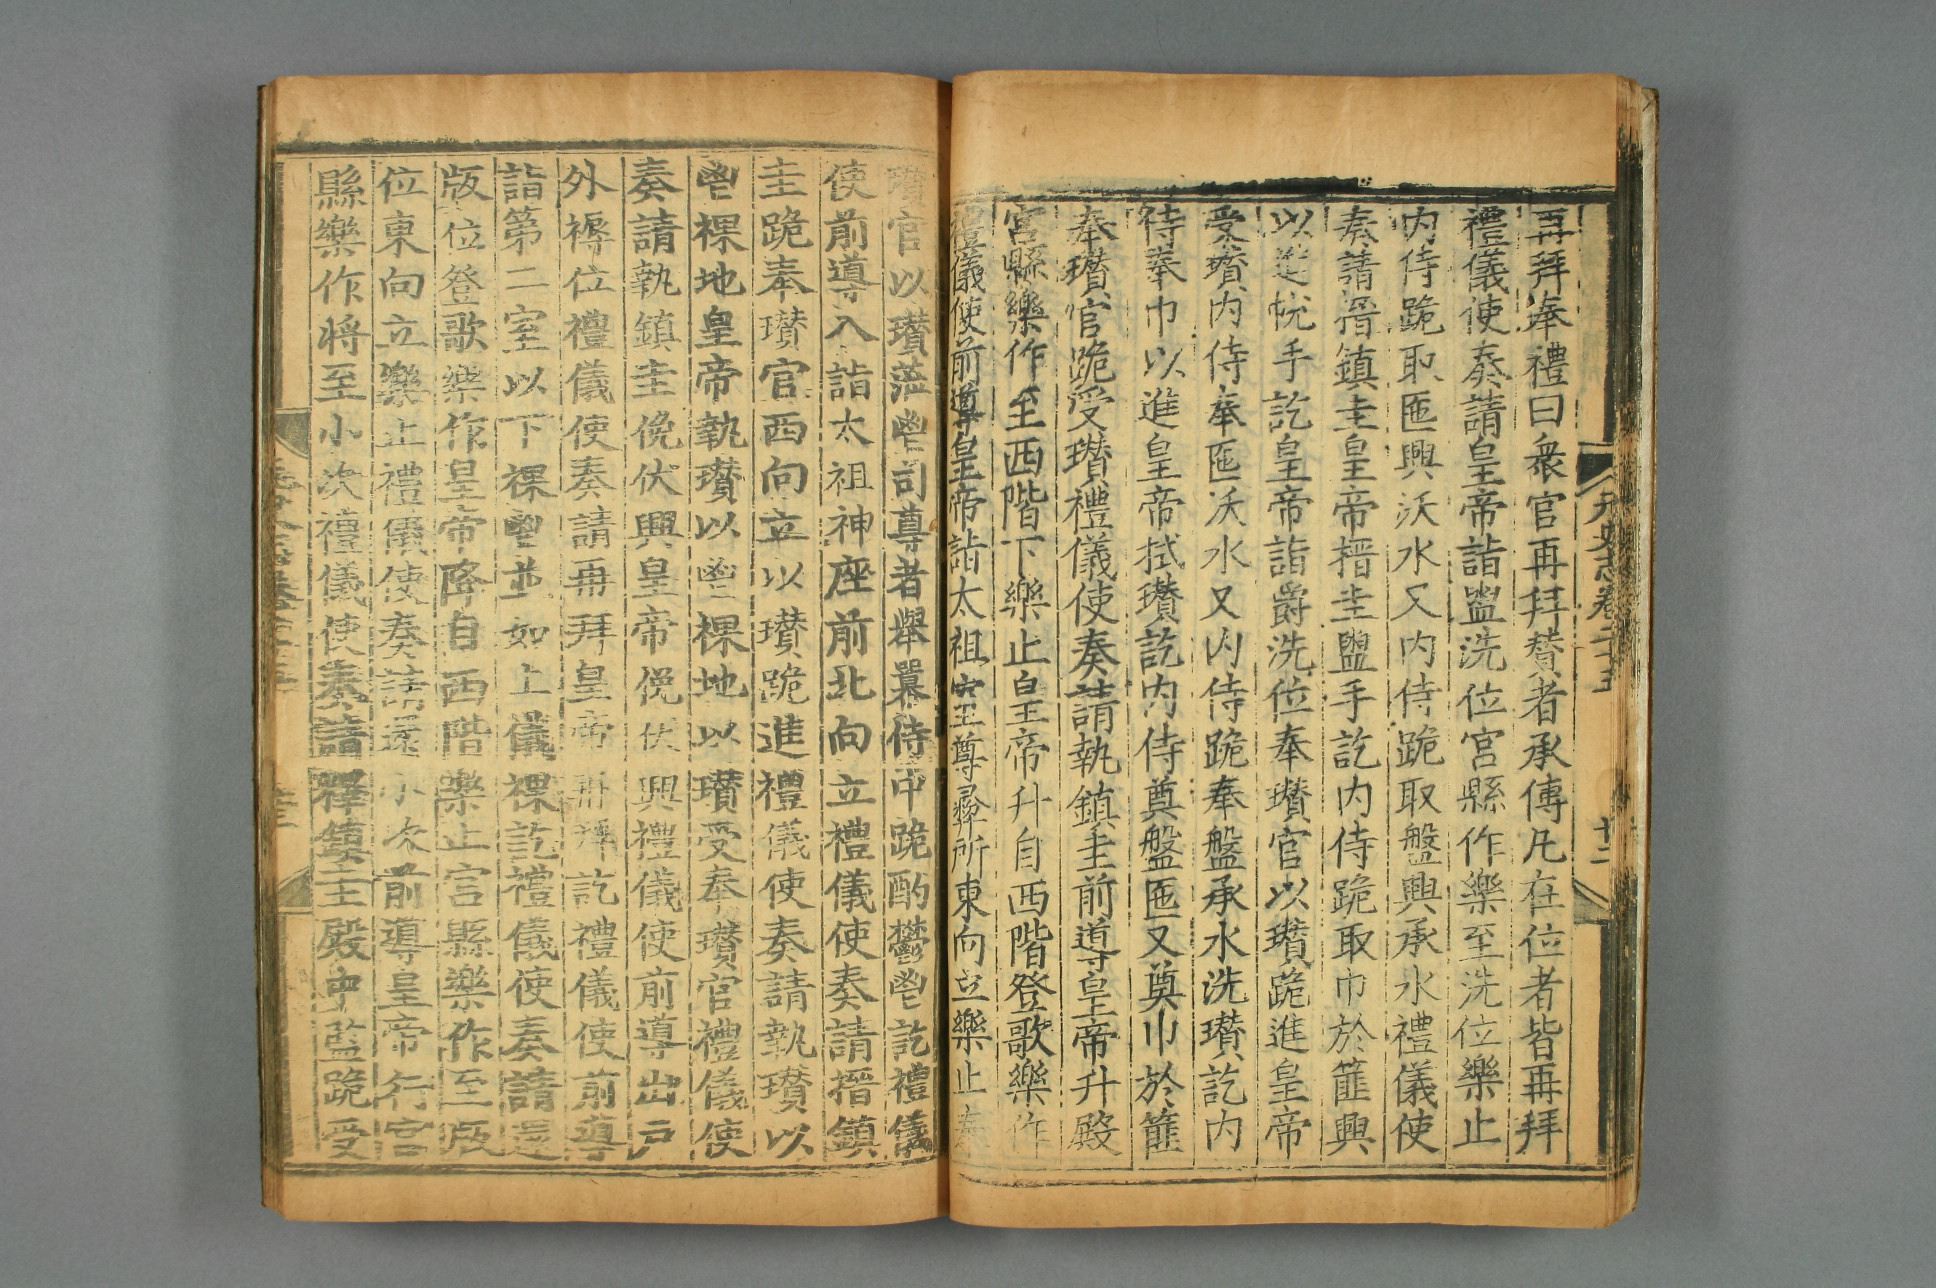 元史志卷二十五
廿二
再拜奉禮曰衆官再拜贊者承傳凡在位者皆再拜
禮儀使奏請皇帝詣盥洗位宮縣作樂至洗位樂止
内侍跪取匜興沃水又内侍跪取盤興承水禮儀使
奏請搢鎮圭皇帝搢圭盥手訖内侍跪取巾於篚興
以進帨手訖皇帝詣爵洗位奉瓚官以瓚跪進皇帝
受瓚内侍奉匜沃水又内侍跪奉盤承水洗瓚訖内
侍奉巾以進皇帝拭瓚訖内侍奠盤匜又奠巾於篚
奉瓚官跪受瓚禮儀使奏請執鎮圭前導皇帝升殿
宮縣樂作至西階下樂止皇帝升自西階登歌樂作
禮儀使前導皇帝詣太祖室尊彛所東向立樂止奉
瓚官以瓚蒞鬯司尊者舉羃侍中跪酌鬱鬯訖禮儀
使前導入詣太祖神座前北向立禮儀使奏請搢鎮
圭跪奉瓚官西向立以瓚跪進禮儀使奏請執瓚以
鬯祼地皇帝執瓚以鬯祼地以瓚受奉瓚官禮儀使
奏請執鎮圭俛伏興皇帝俛伏興禮儀使前導出戶
外褥位禮儀使奏請再拜皇帝再拜訖禮儀使前導
詣第二室以下祼鬯並如上儀祼訖禮儀使奏請還
版位登歌樂作皇帝降自西階樂止宮縣樂作至版
位東向立樂止禮儀使奏請還小次前導皇帝行宮
縣樂作將至小次禮儀使奏請釋鎮圭殿中監跪受